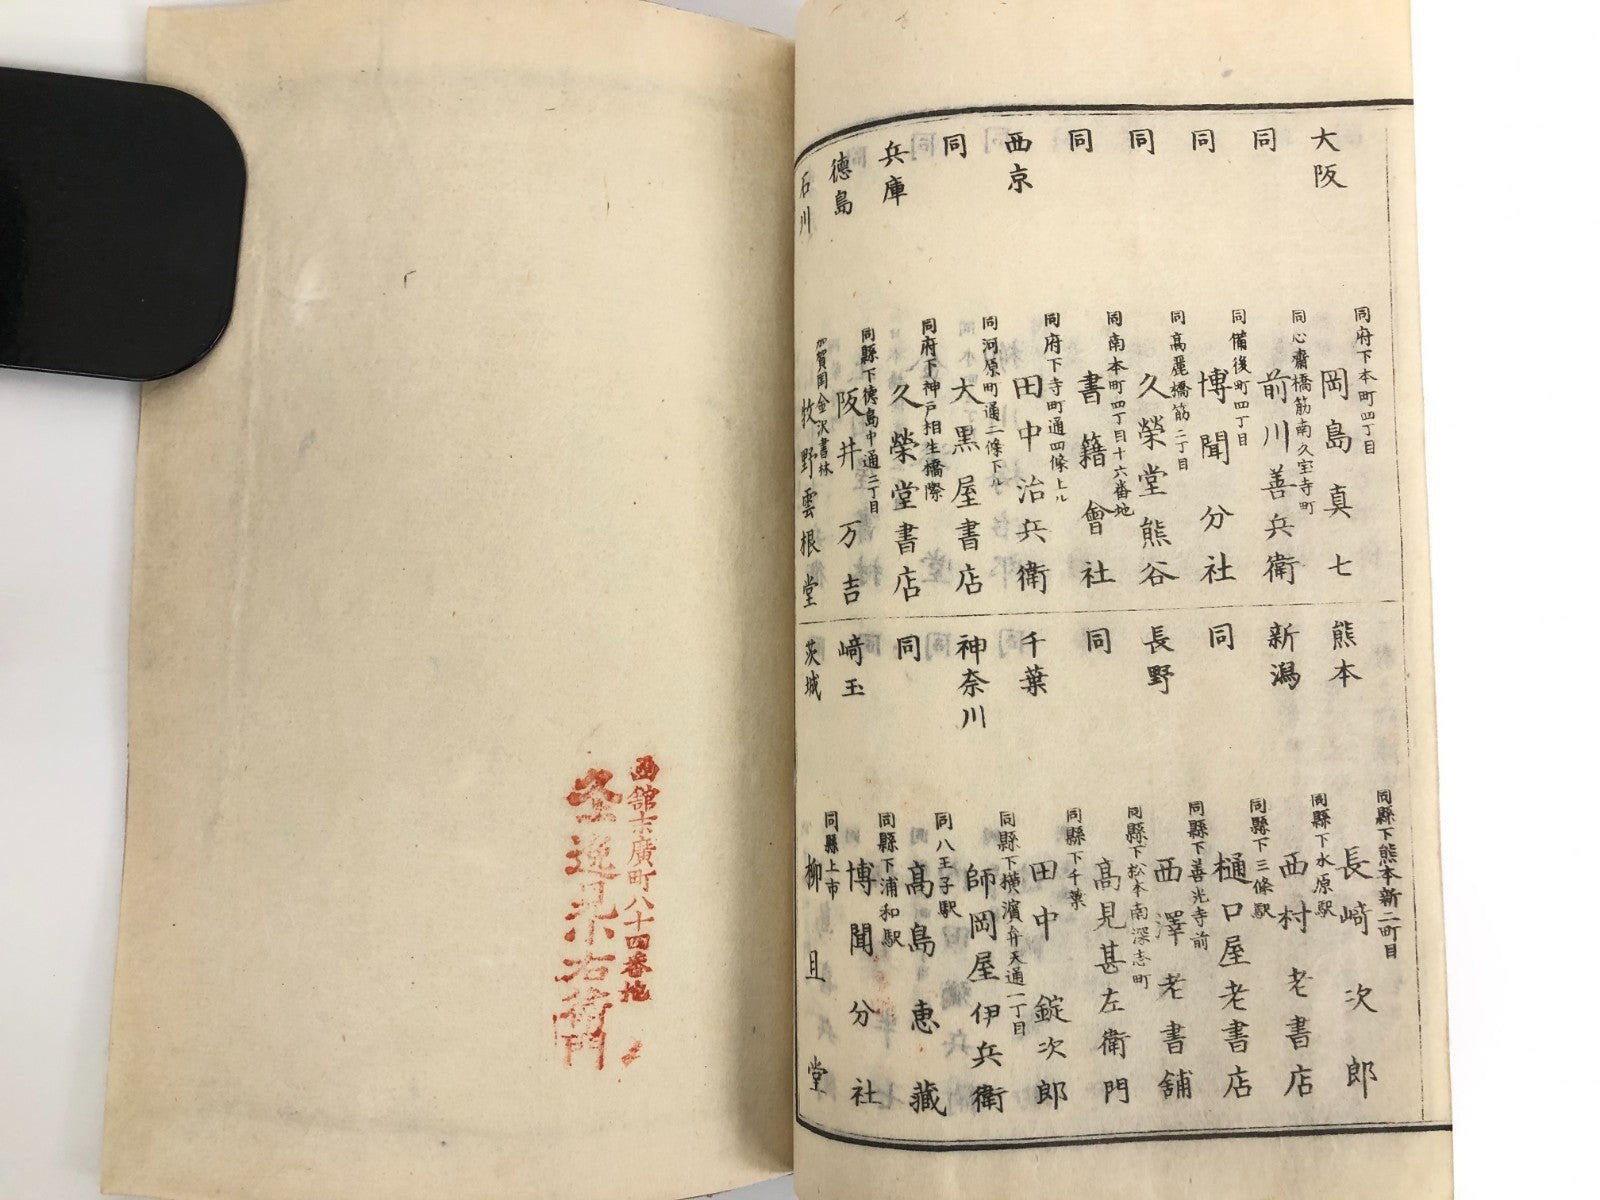 大阪
同府下本町四丁目
岡島真七
同
同心齋橋筋南久宝寺町
前川善兵衛
同
同備後町四丁目
博聞分社
同
同高麗橋筋二丁目
久榮堂熊谷
同
同南本町四丁目十六番地
書籍會社
西京
同府下寺町通四條上ル
田中治兵衛
同
同河原町通二條下ル
大黒屋書店
兵庫
同府下神戸相生橋際
久榮堂書店
德島
同縣下德島中通二丁目
阪井万吉
石川
加賀国金沢書林
牧野雲根堂
熊本
同縣下熊本新二町目
長﨑次郎
新潟
同縣下水原駅
西村老書店
同
同縣下三條駅
樋口屋老書店
長野
同縣下善光寺前
西澤老書舗
同
同縣下松本南深志町
高見甚左衛門
千葉
同縣下千葉
田中錠次郎
神奈川
同縣下横濱弁天通一丁目
師岡屋伊兵衛
同
同八王子駅
髙島惠藏
﨑玉
同縣下浦和駅
博聞分社
茨城
同縣上市
柳旦堂
末廣町八十四番地
逸見小右衛門